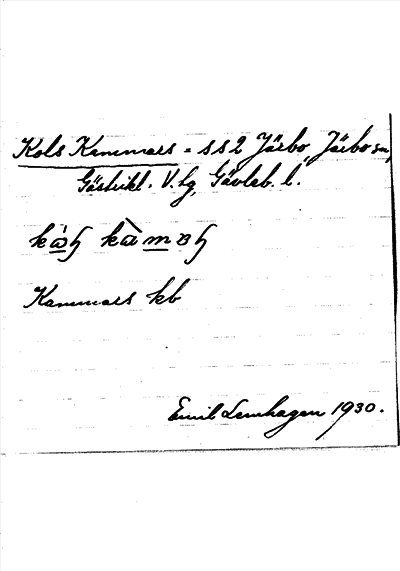 Kols Kammars = s s 2 Järbo, Järbo sn,
Gästrikl. V. tg, Gävleb. l.
kammars kb
Emil Lemhagen 1930.